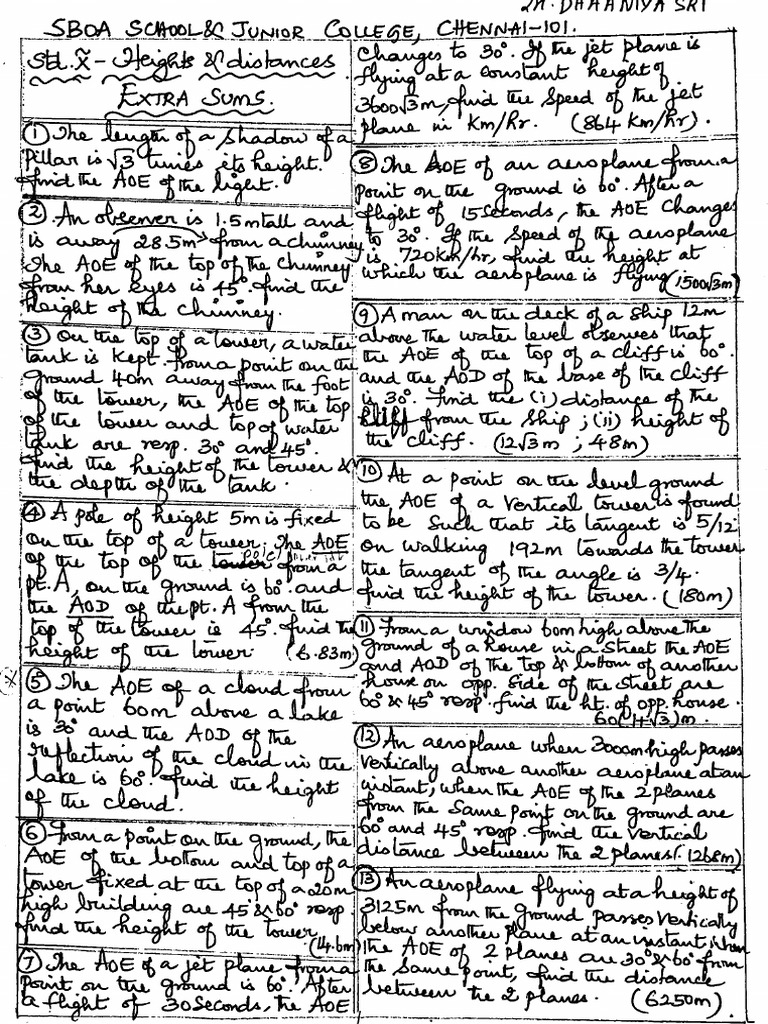 2M. DHAANIYA SRI
SBOA SCHOOL & JUNIOR COLLEGE, CHENNAI-101.
Std. X - Heights & distances
EXTRA SUMS.
① The length of a shadow of a
pillar is √3 times its height.
find the AOE of the light.
② An observer is 1.5m tall and
is away 28.5m from a chimney
The AOE of the top of the chimney
from her eyes is 45°. find the
height of the chimney.
③ On the top of a tower, a water
tank is kept. from a point on the
ground 40m away from the foot
of the tower, the AOE of the top
of the tower and top of water
tank are resp. 30° and 45°.
find the height of the tower &
the depth of the tank.
④ A pole of height 5m is fixed
on the top of a tower. The AOE
of the top of the tower from a
pole
pt. A, on the ground is 60° and
the AOD of the pt. A from the
top of the tower is 45°. find the
height of the tower. (6.83m)
⑤ The AOE of a cloud from
a point 60m above a lake
is 30° and the AOD of the
reflection of the cloud in the
lake is 60°. find the height
of the cloud.
⑥ From a point on the ground, the
AOE of the bottom and top of a
tower fixed at the top of a 20m
high building are 45° & 60° resp.
find the height of the tower.
(14.6m)
⑦ The AOE of a jet plane from a
point on the ground is 60°. After
a flight of 30 seconds, the AOE
changes to 30°. If the jet plane is
flying at a constant height of
3600√3m, find the speed of the jet
plane in km/hr. (864 km/hr).
⑧ The AOE of an aeroplane from a
point on the ground is 60°. After a
flight of 15 seconds, the AOE changes
to 30°. If the speed of the aeroplane
is 720km/hr, find the height at
which the aeroplane is flying (1500√3m)
⑨ A man on the deck of a ship 12m
above the water level observes that
the AOE of the top of a cliff is 60°.
and the AOD of the base of the cliff
is 30°. find the (i) distance of the
cliff from the ship ; (ii) height of
the cliff. (12√3m ; 48m)
⑩ At a point on the level ground
the AOE of a vertical tower is found
to be such that its tangent is 5/12
on walking 192m towards the tower
the tangent of the angle is 3/4.
find the height of the tower. (180m)
⑪ From a window 60m high above the
ground of a house in a street the AOE
and AOD of the top & bottom of another
house on opp. side of the street are
60° & 45° resp. find the ht. of opp. house.
60(1+√3)m.
⑫ An aeroplane when 3000m high passes
vertically above another aeroplane at an
instant, when the AOE of the 2 planes
from the same point on the ground are
60° and 45° resp. find the vertical
distance between the 2 planes (1268m)
⑬ An aeroplane flying at a height of
3125m from the ground passes vertically
below another plane at an instant when
the AOE of 2 planes are 30° & 60° from
the same point, find the distance
between the 2 planes. (6250m)